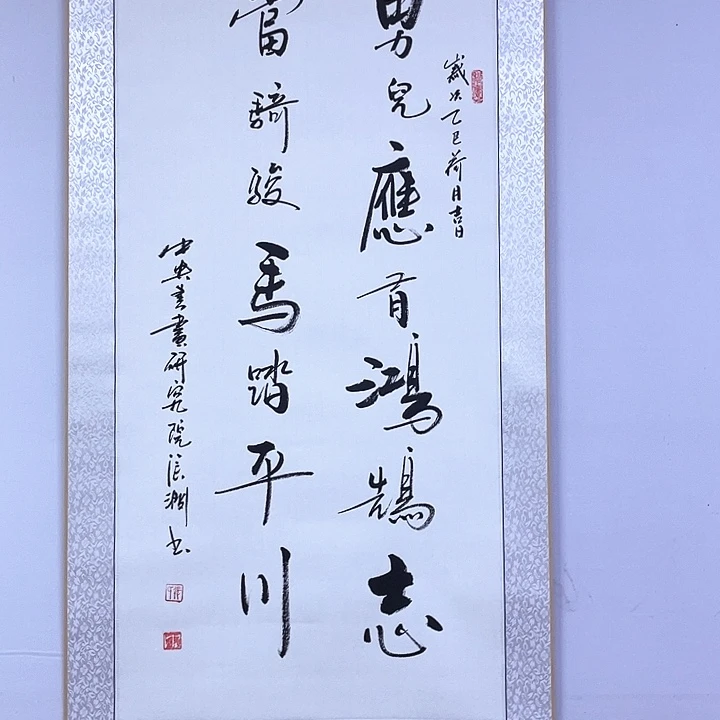 歲次乙巳荷月吉日
男兒應有鴻鵠志
當騎駿馬踏平川
中央書畫研究院 淵書